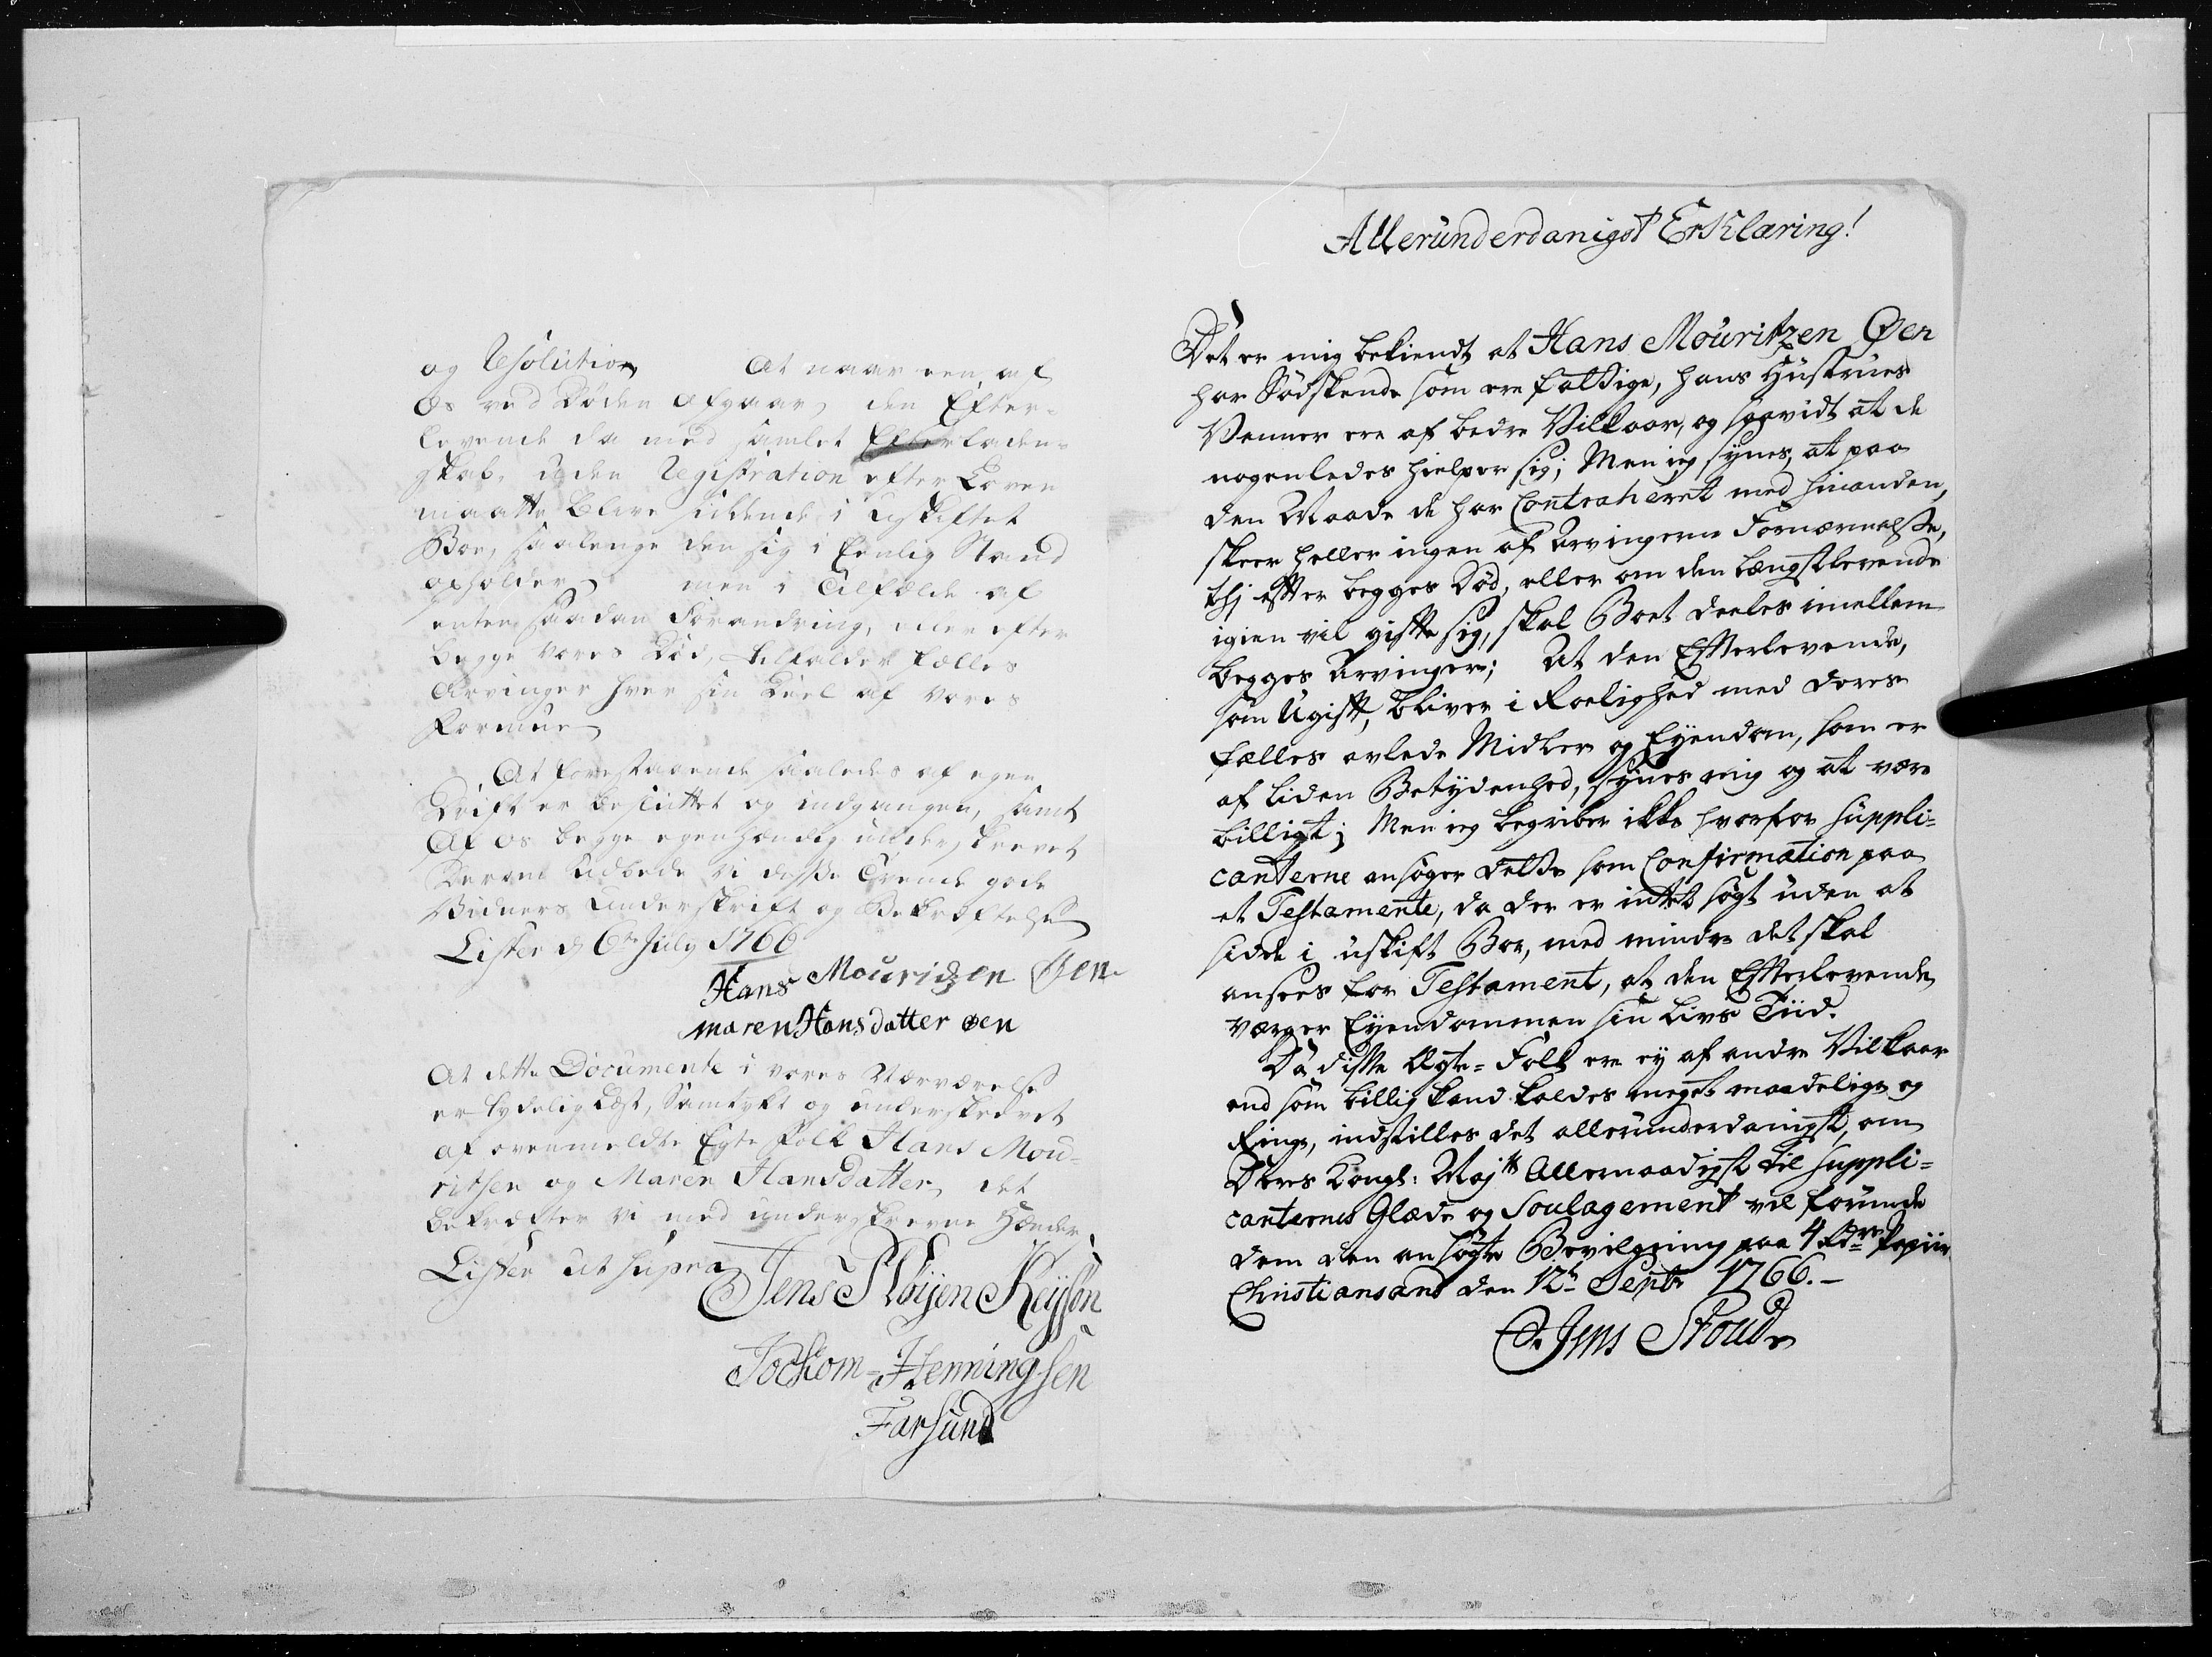 og Resolution, At naar een af
Os ved Døden afgaar, den Efter-
levende da med samlet Efterladen-
skab, uden Registration efter Loven
maatte blive siddende i Uskiftet
Boe, saalenge den sig i Eenlig Stand
opholder, men i Tilfælde af
enten saadan Forandring, eller efter
begge vores Død, tilfalder fælles
Arvinger hver sin Deel af vores
Formue
At forestaaende saaledes af egen
Drift er besluttet og indgangen, samt
Af os begge egenhændig underskrevet
Derom Udbede vi disse Tvende gode
Vidners underskrift og Bekræftelse
Lister d 6te July 1766
Hans Mouridzen Øen
maren Hans datter øen
At dette Documente i vores Nærværelse
er lydelig Læst, Samtykt og underskrevet
af ovenmeldte Egte Folk Hans Mou-
ritsen og Maren Hansdatter, det
bekræfter vi med underskrevne Hænder
Lister ut supra
Jens Pløijen Keijson
Jochom-Henningsen
Farsund
Allerunderdanigst Erklæring!
Det er mig bekiendt at Hans Mouritzen Øen
har Sødskende som ere fattige, hans Hustrues
Venner ere af bedre Vilkaar, og saavidt at de
nogenledes hielper sig; Men ieg synes, at paa
den Maade de har Contraheret med hinanden,
skeer heller ingen af Arvingerne Fornærmelse,
thj efter begges Død, eller om den Længstlevende
igien vil gifte sig, skal Boet deeles imellem
begges Arvinger; At den Efterlevende,
som Ugift, bliver i Roelighed med deres
fælles avlede Midler og Eyendom, som er
af liden Betydenhed, synes mig og at være
billigt; Men ieg begriber ikke hvorfor suppli=
canterne ansøger dette som Confirmation paa
et Testamente, da der er intet søgt uden at
sidde i uskift Boe, med mindre det skal
ansees for Testament, at den Efterlevende
værger Eyendommen sin Livs Tiid.
Da disse Ægte=Folk ere ey af andre Vilkaar
end som billig kand kaldes meget maadelige og
Ringe, indstilles det allerunderdanigst, om
Deres Kongl: Majts Allernaadigst til suppli=
canternes Glæde og Soulagement vil forunde
dem den ansøgte Bevilgning paa 4 Papiir
Christiansand den 12te Septr 1766.-
Jens Stoud